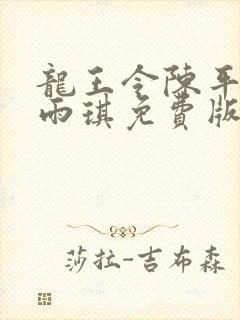 龍王令陳平
雨琪免費版
莎拉-吉布森